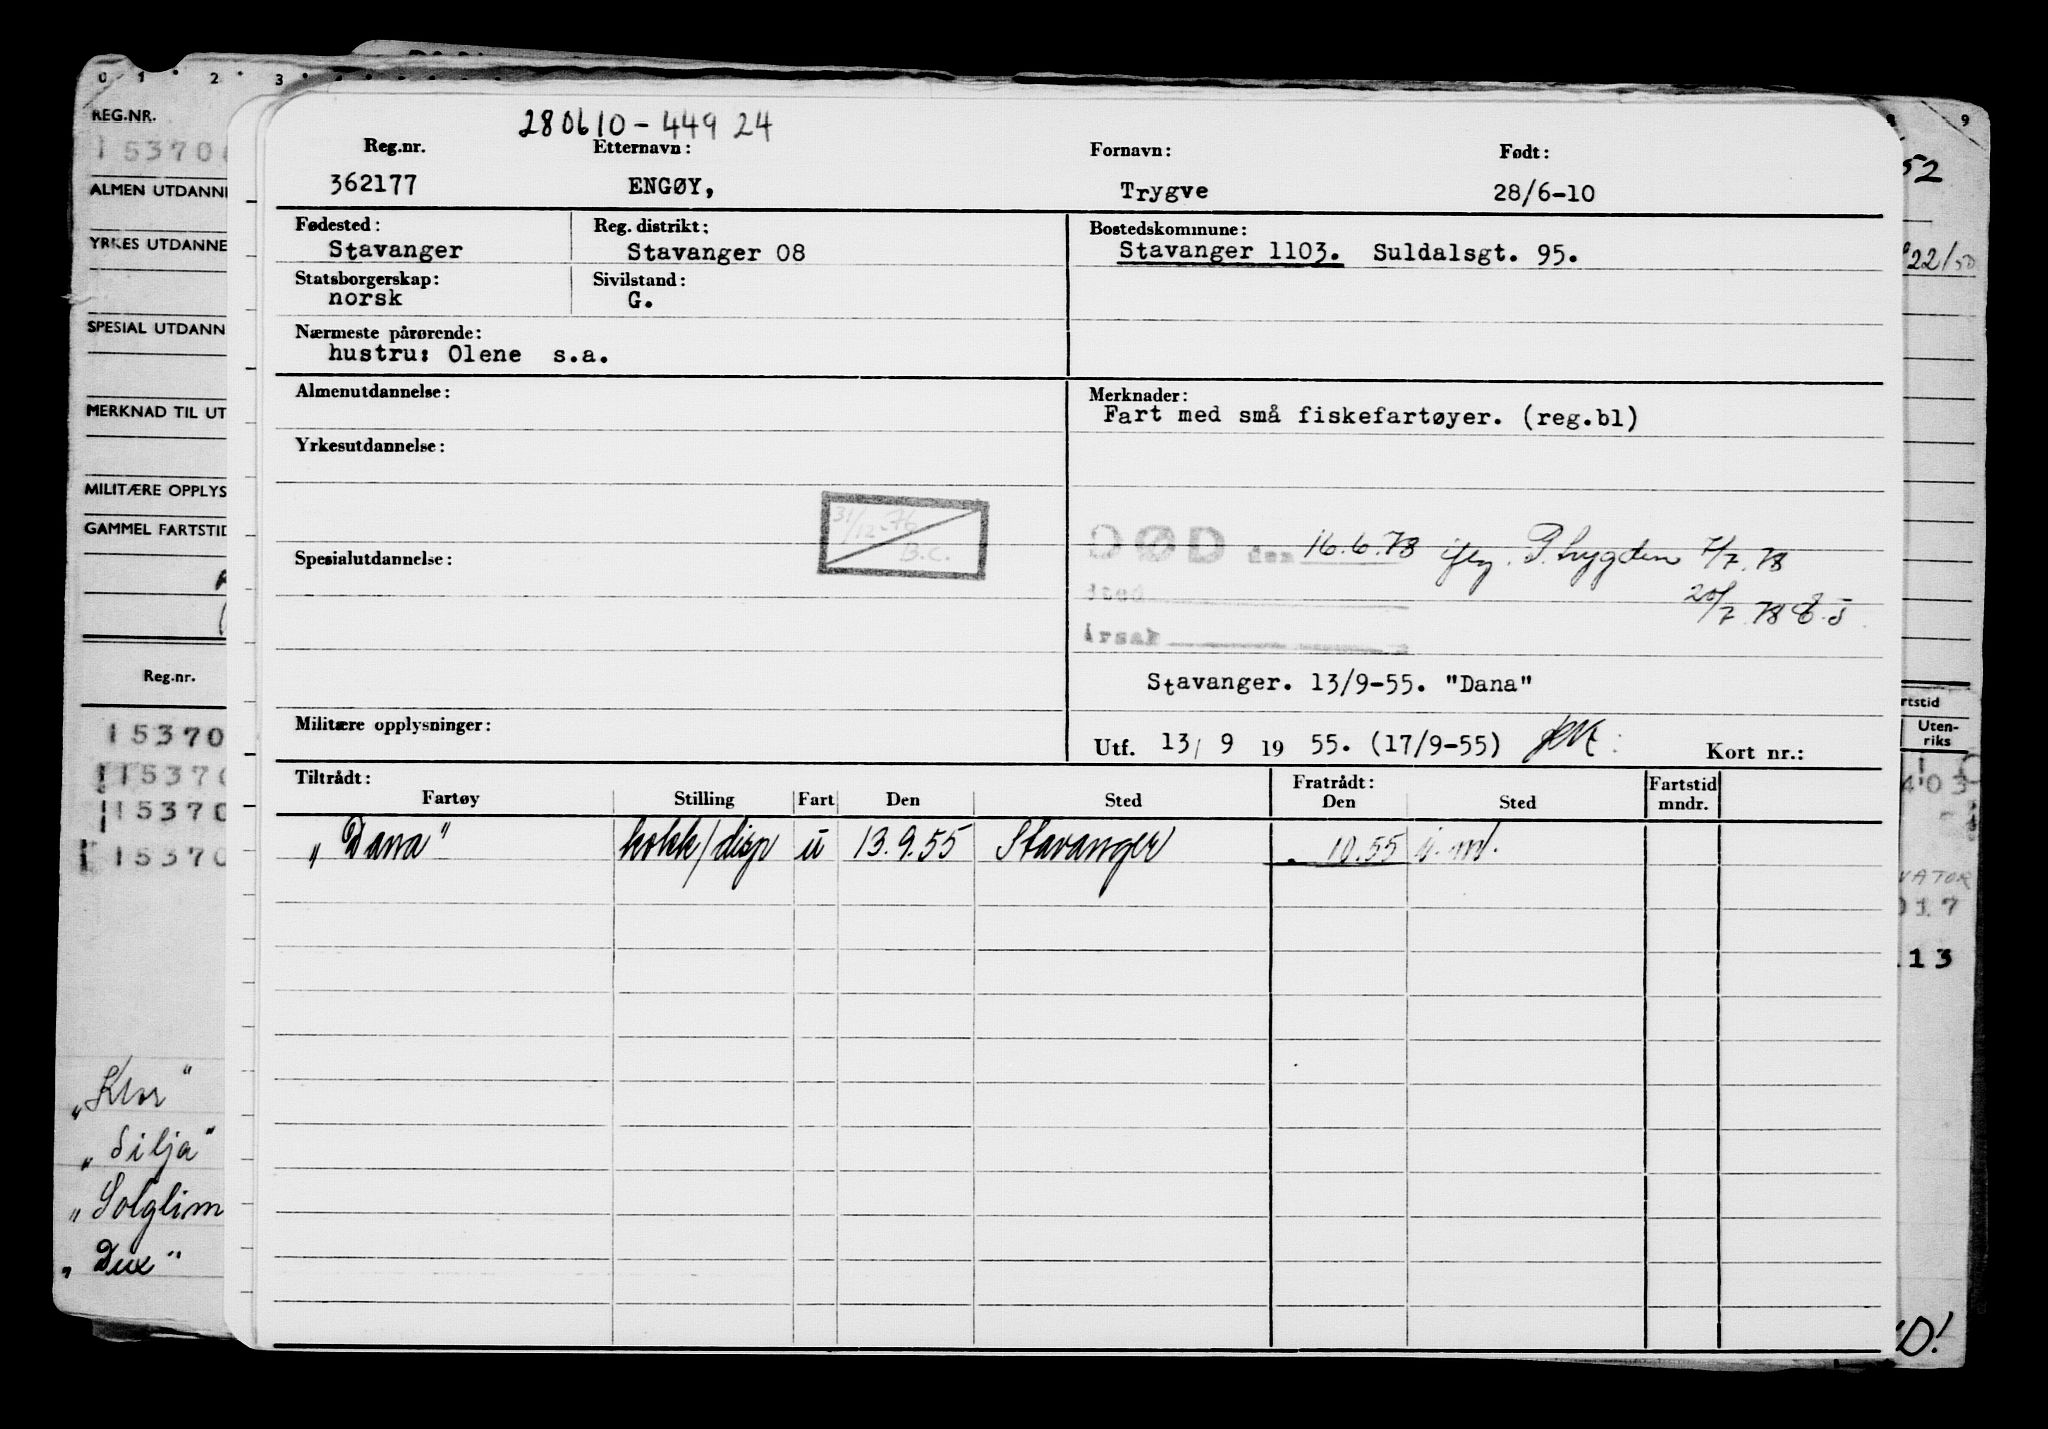 0 1 2 3
9
REG.NR.
153706
ALMEN UTDANNE
YRKES UTDANNE
SPESIAL UTDANN
MERKNAD TIL UT
MILITÆRE OPPLYS
GAMMEL FARTSTID
Reg.nr.
15370
15370
15370
15370
"Klor"
"Silja"
"Solglim
"Dux"
280610-449 24
Reg.nr. Etternavn: Fornavn: Født:
362177 ENGØY, Trygve 28/6-10
Fødested: Reg. distrikt: Bostedskommune:
Stavanger Stavanger 08 Stavanger 1103. Suldalsgt. 95.
Statsborgerskap: Sivilstand:
norsk G.
Nærmeste pårørende:
hustru: Olene s.a.
Almenutdannelse: Merknader:
Fart med små fiskefartøyer. (reg.bl)
Yrkesutdannelse:
31/12-76
B.C.
DØD den 16.6.78 iflg. P. trygden 7/7.78
Spesialutdannelse:
sted
20/7.78
årsak
Stavanger. 13/9-55. "Dana"
Militære opplysninger:
Utf. 13/ 9 19 55. (17/9-55) Kort nr.:
Tiltrådt: Fratrådt: Fartstid
Fartøy Stilling Fart Den Sted Den Sted mndr.
"Dana" kokk/disp u 13.9.55 Stavanger . 10.55 i. m.
52
22/50
rtstid
Uten-
riks
403
VATOR
017
13
D!